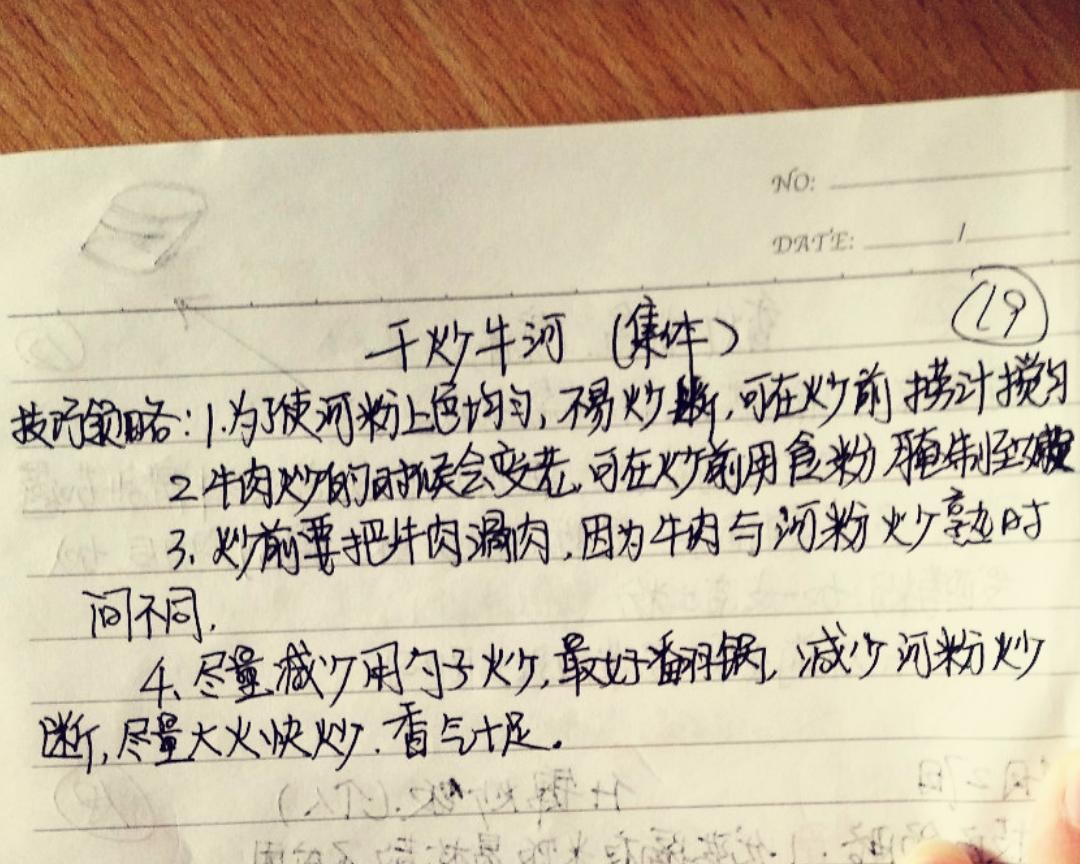 NO:
DATE: /
19
干炒牛河 (集体)
技巧领略: 1.为了使河粉上色均匀, 不易炒断, 可在炒前捞汁搅匀
2.牛肉炒的时候会变老, 可在炒前用食粉腌制至嫩
3.炒前要把牛肉漏肉, 因为牛肉与河粉炒熟时
间不同.
4.尽量减少用勺子炒, 最好翻锅, 减少河粉炒
断, 尽量大火快炒. 香气十足.